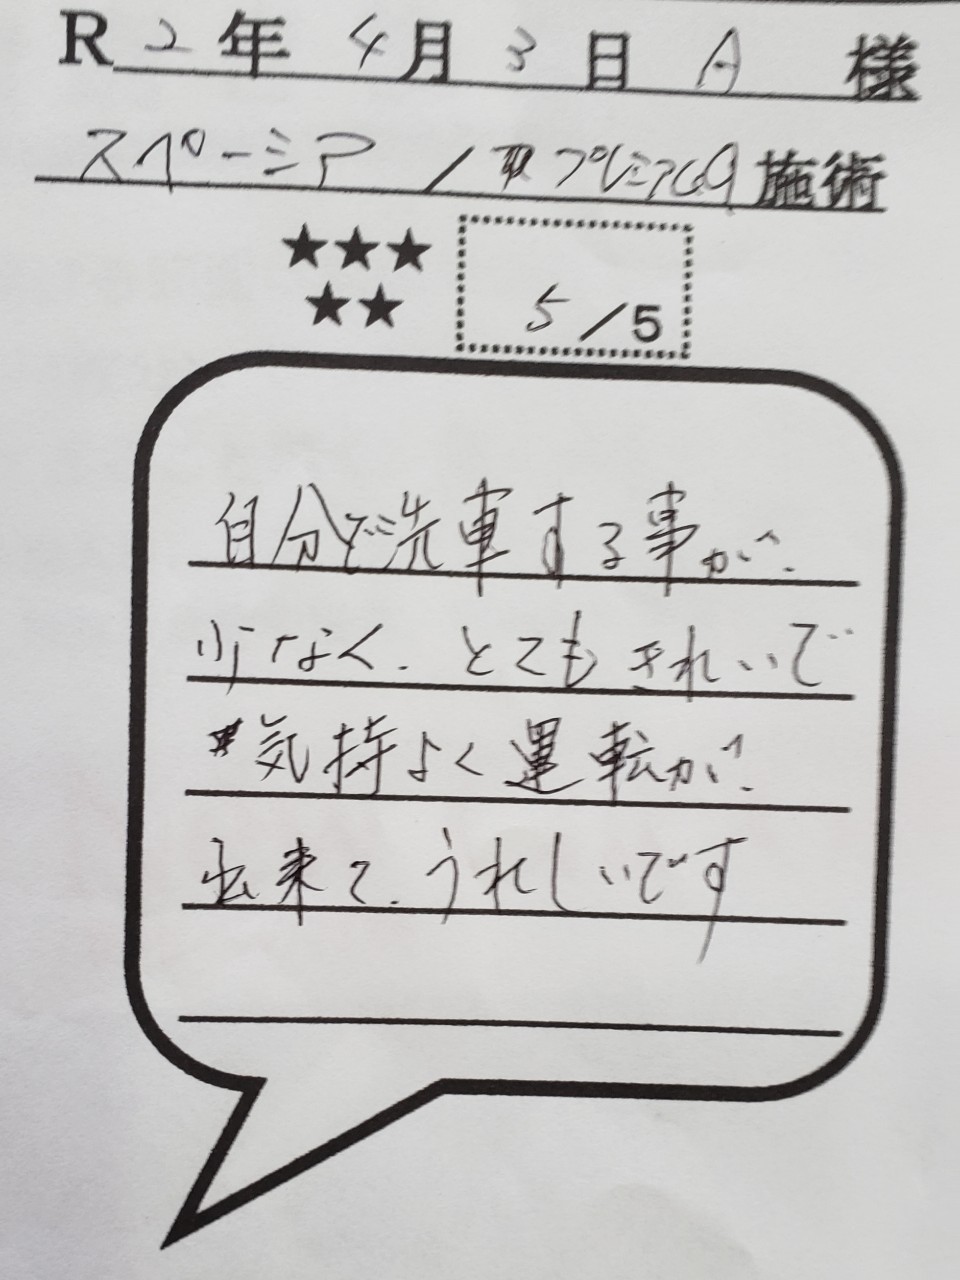 R 2 年 4 月 3 日 A 様
スペーシア / プレミアム 施術
★★★
★★
5/5
自分で洗車する事が、
少なく、とてもきれいで
気持よく運転が、
出来て、うれしいです